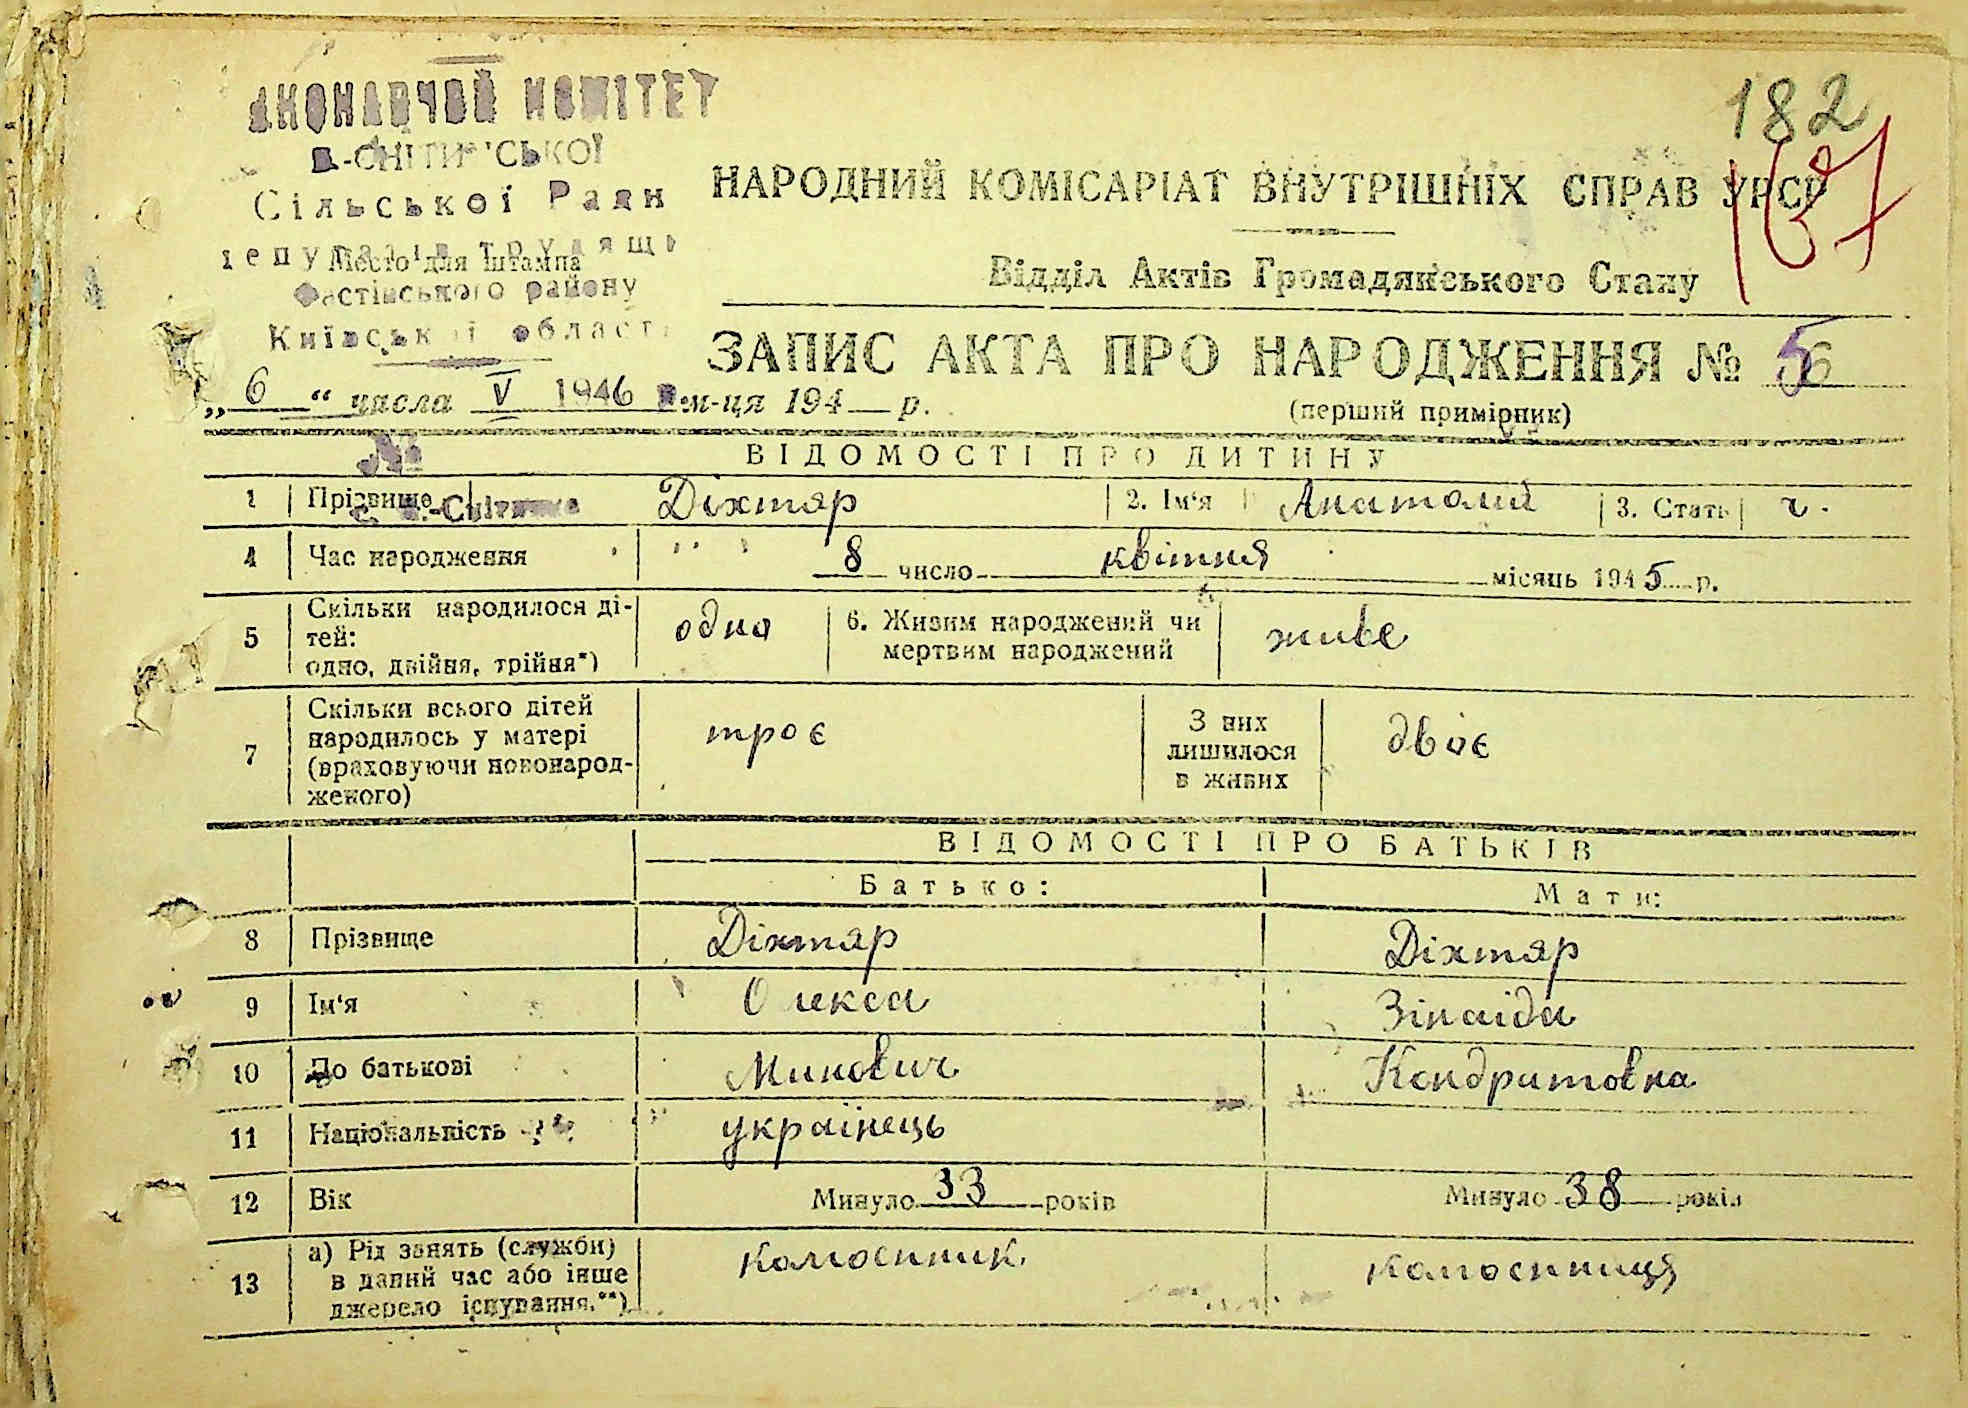 182
167
ВИКОНАВЧИЙ КОМІТЕТ
В-СНІТИНСЬКОЇ
Сільської Ради
депутатів трудящ
Место для штампа
Фастівського району
Київської області
НАРОДНИЙ КОМІСАРІАТ ВНУТРІШНІХ СПРАВ УРСР
Відділ Актів Громадянського Стану
ЗАПИС АКТА ПРО НАРОДЖЕННЯ № 56
(перший примірник)
„ 6 “ числа V 1946 м-ця 194 р.
№
ВІДОМОСТІ ПРО ДИТИНУ
1 Прізвище Діхтяр 2. Ім'я Анатолій 3. Стать ч.
с. В.-Снітинка
4 Час народження 8 число квітня місяць 1945 р.
5 Скільки народилося ді-
тей:
одно, двійня, трійня*)
одна
6. Живим народжений чи
мертвим народжений
живе
7 Скільки всього дітей
народилось у матері
(враховуючи новонарод-
женого)
троє
З них
лишилося
в живих
двоє
ВІДОМОСТІ ПРО БАТЬКІВ
Батько: Мати:
8 Прізвище Діхтяр Діхтяр
9 Ім'я Олекса Зінаіда
10 По батькові Микович Кондратовна
11 Національність українець
12 Вік Минуло 33 років Минуло 38 років
13 а) Рід занять (служби)
в даний час або інше
джерело існування.**)
колгоспник колгоспниця